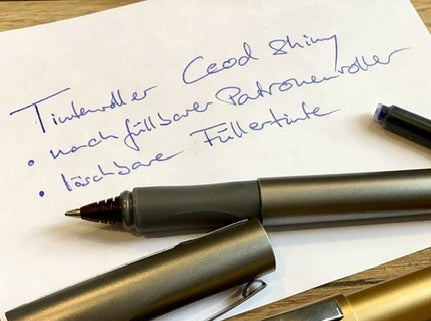 Tintenroller Ceod Shiny
• nachfüllbarer Patronenroller
• löschbare Füllertinte